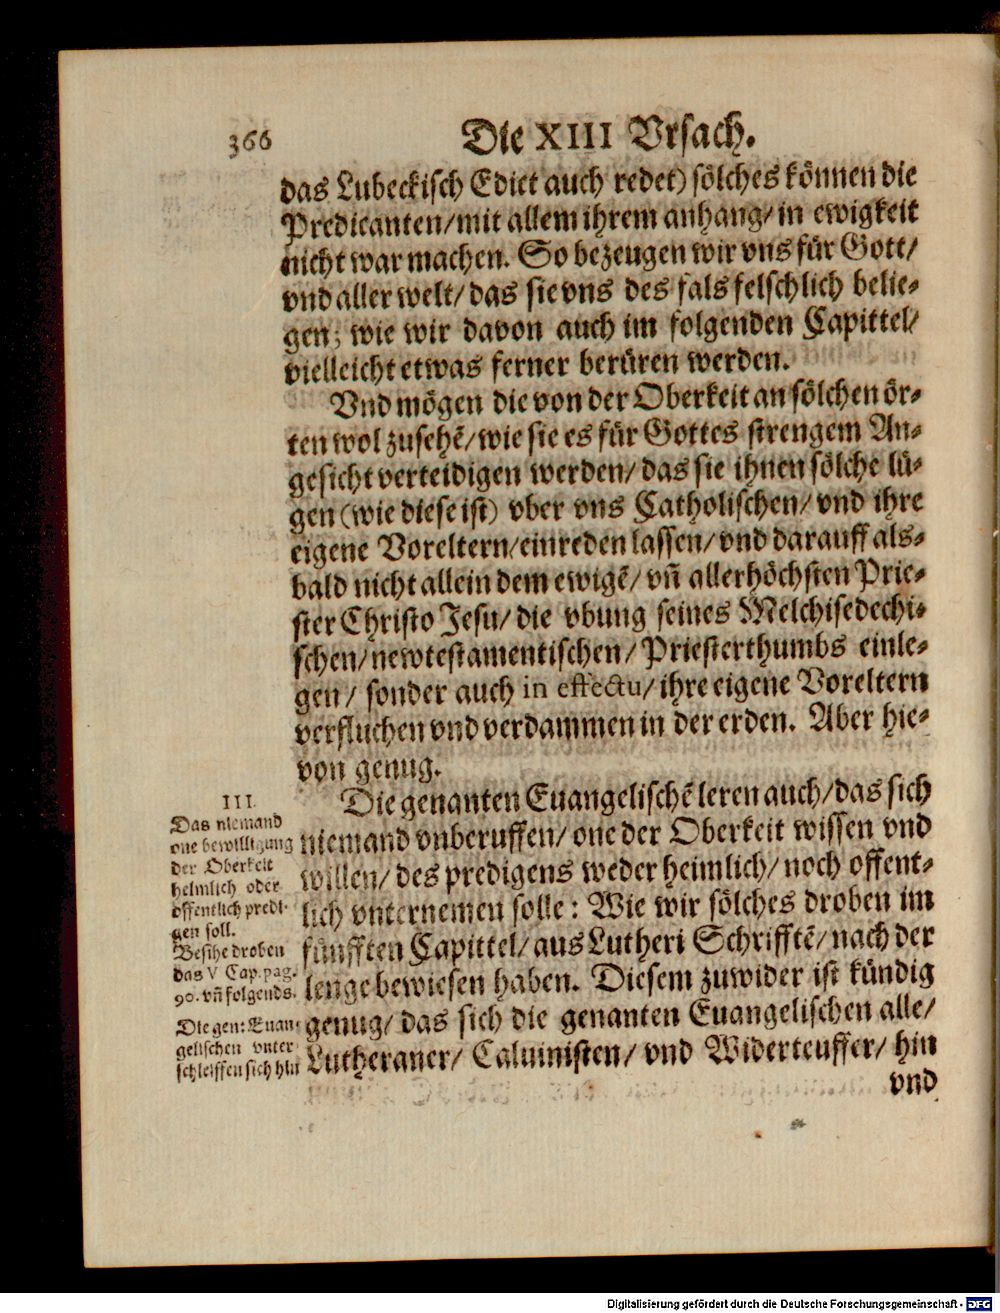 366
Die XIII Vrsach.
das Lubeckisch Edict auch redet) sölches können die
Predicanten/mit allem ihrem anhang/in ewigkeit
nicht war machen. So bezeugen wir vns für Gott/
vnd aller welt/das sie vns des fals felschlich belie-
gen; wie wir davon auch im folgenden Capittel/
vielleicht etwas ferner berüren werden.
Vnd mögen die von der Oberkeit an sölchen ör-
ten wol zusehẽ/wie sie es für Gottes strengem An-
gesicht verteidigen werden/das sie ihnen sölche lü-
gen (wie diese ist) vber vns Catholischen/vnd ihre
eigene Voreltern/einreden lassen/vnd darauff als-
bald nicht allein dem ewigẽ/vñ allerhöchsten Prie-
ster Christo Jesu/die vbung seines Melchisedechi-
schen/newtestamentischen/Priesterthumbs einle-
gen/sonder auch in effectu/ihre eigene Voreltern
verfluchen vnd verdammen in der erden. Aber hie-
von genug.
Die genanten Euangelischẽ leren auch/das sich
niemand vnberuffen/one der Oberkeit wissen vnd
willen/des predigens weder heimlich/noch offent-
lich vnternemen solle: Wie wir sölches droben im
fünfften Capittel/aus Lutheri Schrifftẽ/nach der
lenge bewiesen haben. Diesem zuwider ist kündig
genug/das sich die genanten Euangelischen alle/
Lutheraner/Caluinisten/vnd Widerteuffer/hin
vnd
III
Das niemand
one bewilligung
der Oberkeit
heimlich oder
öffentlich predi-
gen soll.
Besihe droben
das V Cap. pag.
90. vñ folgends.
Die gen: Euan-
gelischen vnter
schleiffen sich hin
Digitalisierung gefördert durch die Deutsche Forschungsgemeinschaft - DFG